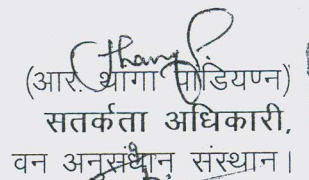 (आर. थागा पांडियण्न)
सतर्कता अधिकारी,
वन अनुसंधान संस्थान।